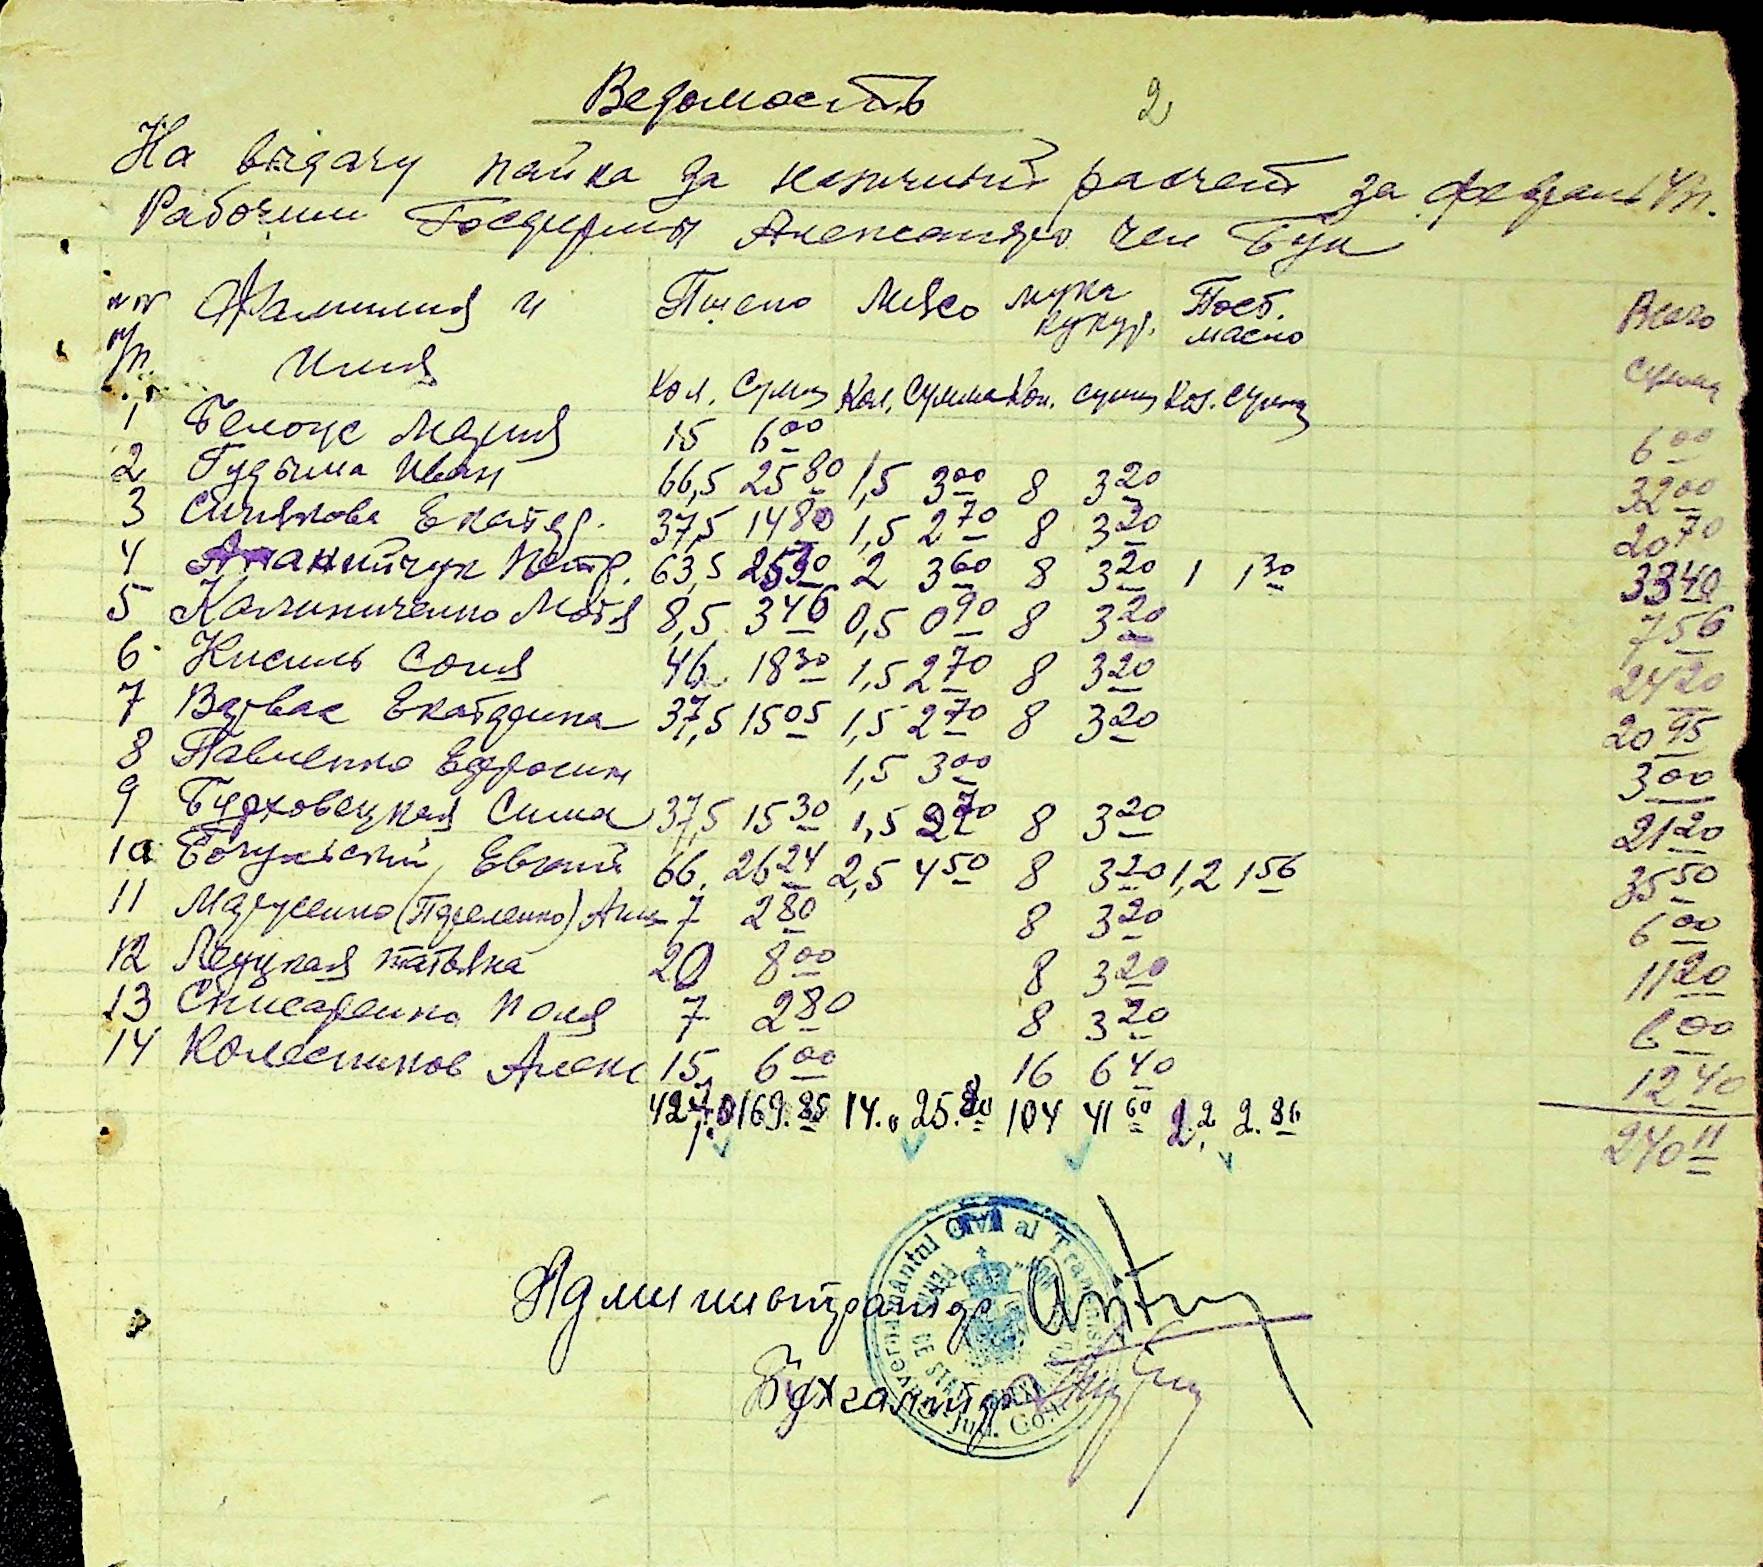 Ведомость 2
На выдачу пайка за наличный расчет за февраль м-ц.
Рабочим Госфермы Александро чел Буг
№№ Фамилия и Пшено Мясо мука кукур. Пост. масло Всего
п/п. Имя Кол. Сумма Кол. Сумма Кол. сумма Кол. сумма сумма
1 Белоус Мария 15 6 00 6 00
2 Гудыма Иван 66,5 25 80 1,5 3 00 8 3 20 32 00
3 Синякова Екатер. 37,5 14 80 1,5 2 70 8 3 20 20 70
4 Ананийчук Петр. 63,5 25 30 2 3 60 8 3 20 1 1 30 33 40
5 Калиниченко Мотя 8,5 3 46 0,5 0 90 8 3 20 7 56
6 Кисиль Соня 46 18 30 1,5 2 70 8 3 20 24 20
7 Варвас Екатерина 37,5 15 05 1,5 2 70 8 3 20 20 95
8 Павленко Ефросин 1,5 3 00 3 00
9 Бурховецкая Сима 37,5 15 30 1,5 2 70 8 3 20 21 20
10 Евгений 66 26 24 2,5 4 50 8 3 20 1,2 1 56 35 50
11 Марусенко (Павленко) Анна 7 2 80 8 3 20 6 00
12 Лецкая Татьяна 20 8 00 8 3 20 11 20
13 Писаренко Поля 7 2 80 8 3 20 6 00
14 Колесников Алекс 15 6 00 16 6 40 12 40
427,0 169.85 14.0 25.80 104 41 60 2.2 2.86 240 11
Guvernământul Civil al Transnistriei
Jud. Golta
Администратор
Бухгалтер